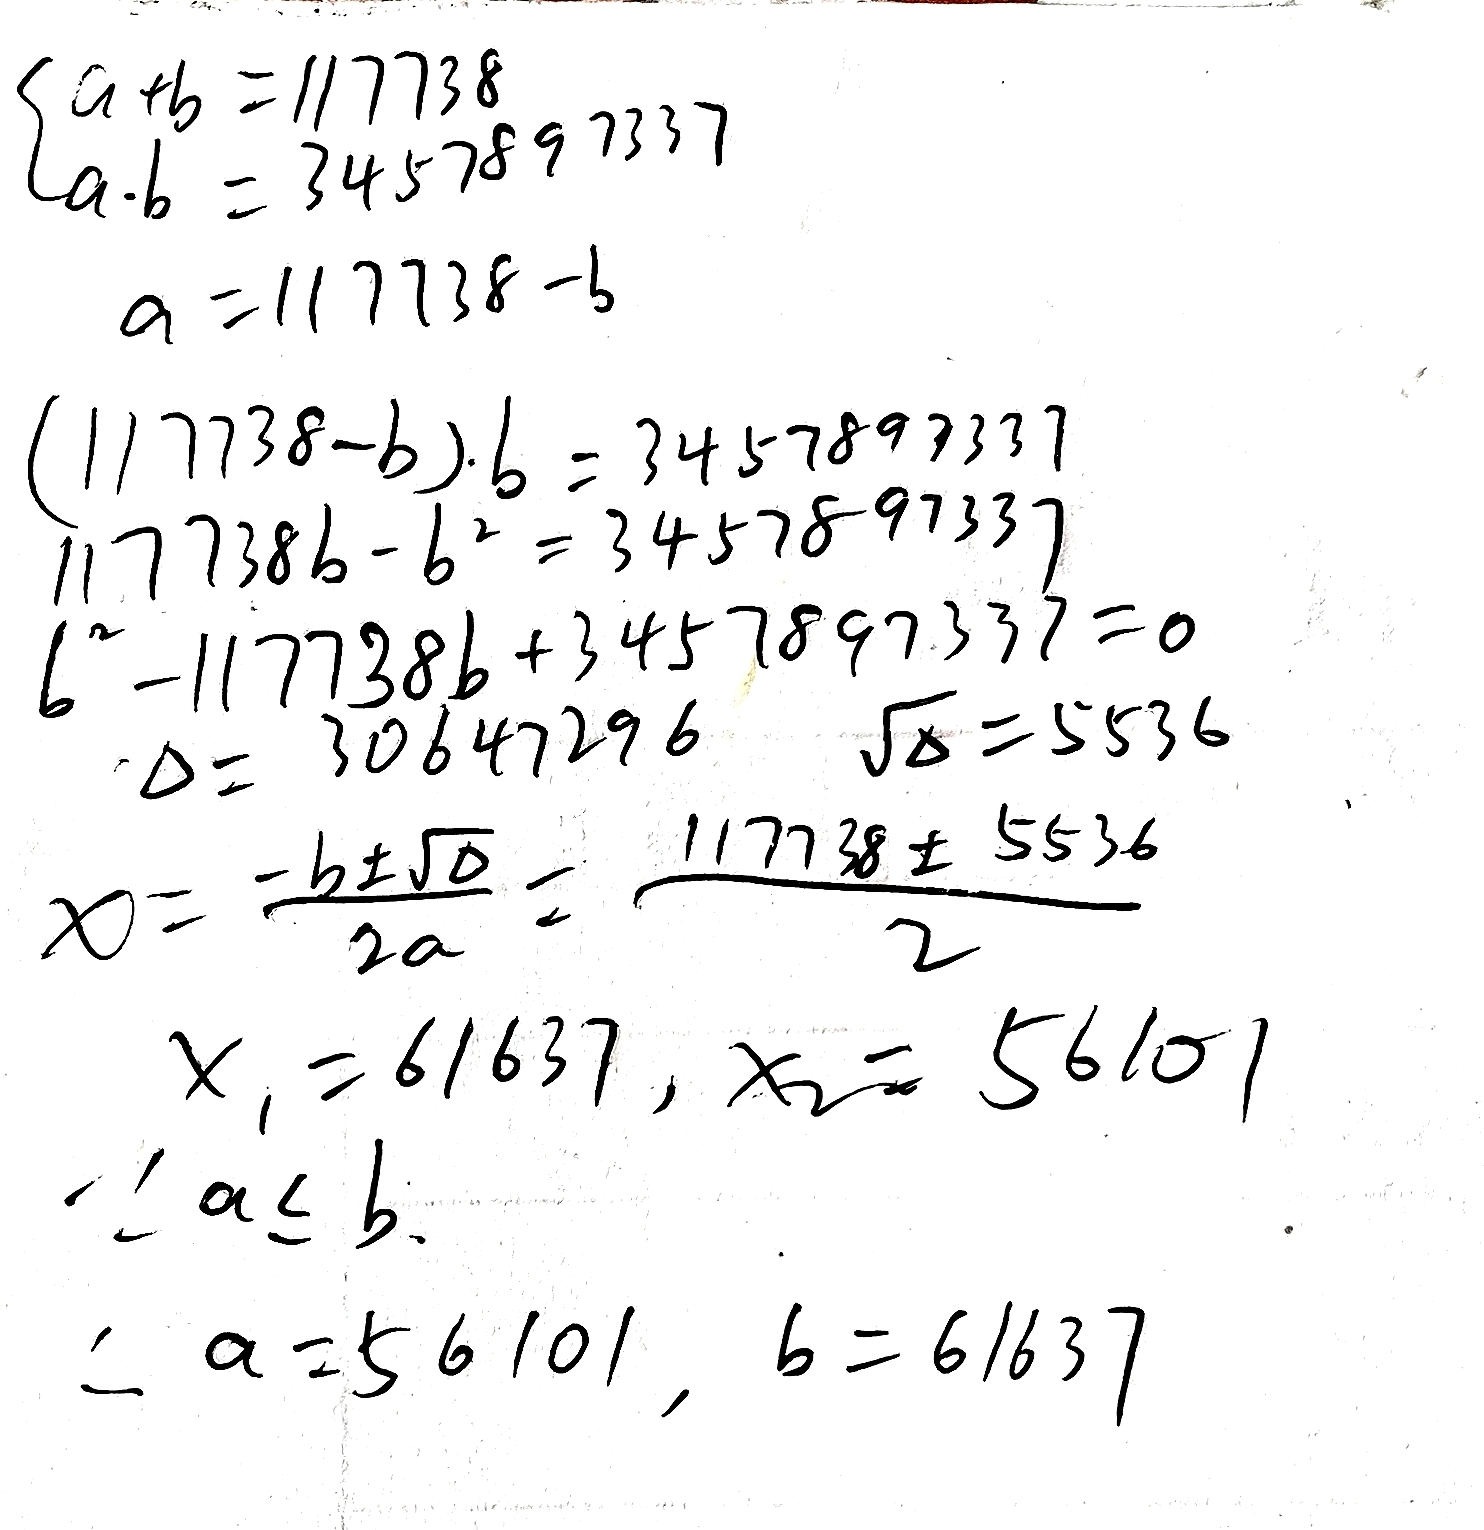 {a+b=117738
a·b=3457897337
a=117738-b
(117738-b)·b=3457897337
117738b-b²=3457897337
b²-117738b+3457897337=0
Δ=30647296 √Δ=5536
x=(-b±√Δ)/(2a)=(117738±5536)/2
x₁=61637, x₂=56101
∵a≤b.
∴a=56101, b=61637